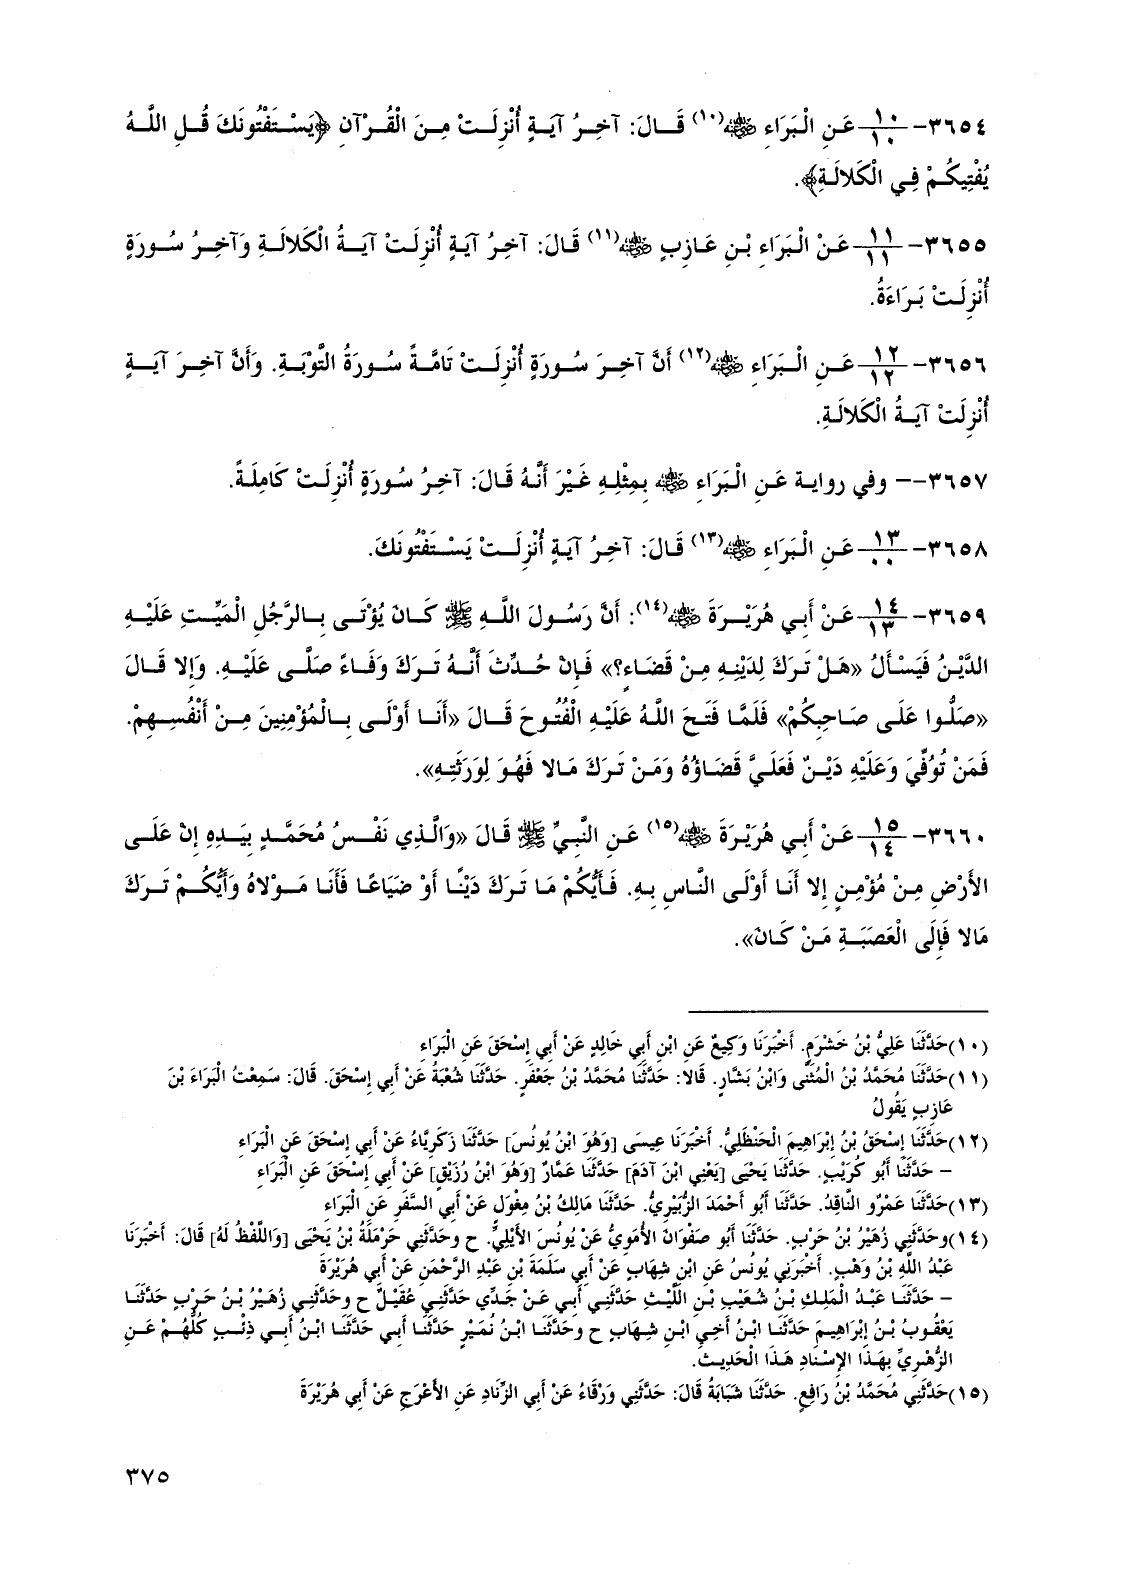 ٣٦٥٤- ١٠/١٠ عَنِ الْبَرَاءِ ﷺ(١٠) قَالَ: آخِرُ آيَةٍ أُنْزِلَتْ مِنَ الْقُرْآنِ ﴿يَسْتَفْتُونَكَ قُلِ اللَّهُ
يُفْتِيكُمْ فِي الْكَلالَةِ﴾.
٣٦٥٥- ١١/١١ عَنْ الْبَرَاءِ بْنِ عَازِبٍ رضي الله عنه(١١) قَالَ: آخِرُ آيَةٍ أُنْزِلَتْ آيَةُ الْكَلالَةِ وَآخِرُ سُورَةٍ
أُنْزِلَتْ بَرَاءَةُ.
٣٦٥٦- ١٢/١٢ عَنِ الْبَرَاءِ رضي الله عنه(١٢) أَنَّ آخِرَ سُورَةٍ أُنْزِلَتْ تَامَّةً سُورَةُ التَّوْبَةِ. وَأَنَّ آخِرَ آيَةٍ
أُنْزِلَتْ آيَةُ الْكَلالَةِ.
٣٦٥٧-- وفي رواية عَنِ الْبَرَاءِ رضي الله عنه بِمِثْلِهِ غَيْرَ أَنَّهُ قَالَ: آخِرُ سُورَةٍ أُنْزِلَتْ كَامِلَةً.
٣٦٥٨- ١٣/٠٠ عَنِ الْبَرَاءِ رضي الله عنه(١٣) قَالَ: آخِرُ آيَةٍ أُنْزِلَتْ يَسْتَفْتُونَكَ.
٣٦٥٩- ١٤/١٣ عَنْ أَبِي هُرَيْرَةَ رضي الله عنه(١٤): أَنَّ رَسُولَ اللَّهِ ﷺ كَانَ يُؤْتَى بِالرَّجُلِ الْمَيِّتِ عَلَيْهِ
الدَّيْنُ فَيَسْأَلُ «هَلْ تَرَكَ لِدَيْنِهِ مِنْ قَضَاءٍ؟» فَإِنْ حُدِّثَ أَنَّهُ تَرَكَ وَفَاءً صَلَّى عَلَيْهِ. وَإِلا قَالَ
«صَلُّوا عَلَى صَاحِبِكُمْ» فَلَمَّا فَتَحَ اللَّهُ عَلَيْهِ الْفُتُوحَ قَالَ «أَنَا أَوْلَى بِالْمُؤْمِنِينَ مِنْ أَنْفُسِهِمْ.
فَمَنْ تُوُفِّيَ وَعَلَيْهِ دَيْنٌ فَعَلَيَّ قَضَاؤُهُ وَمَنْ تَرَكَ مَالا فَهُوَ لِوَرَثَتِهِ».
٣٦٦٠- ١٥/١٤ عَنْ أَبِي هُرَيْرَةَ رضي الله عنه(١٥) عَنِ النَّبِيِّ ﷺ قَالَ «وَالَّذِي نَفْسُ مُحَمَّدٍ بِيَدِهِ إِنْ عَلَى
الأَرْضِ مِنْ مُؤْمِنٍ إِلا أَنَا أَوْلَى النَّاسِ بِهِ. فَأَيُّكُمْ مَا تَرَكَ دَيْنًا أَوْ ضَيَاعًا فَأَنَا مَوْلاهُ وَأَيُّكُمْ تَرَكَ
مَالا فَإِلَى الْعَصَبَةِ مَنْ كَانَ».
(١٠)حَدَّثَنَا عَلِيُّ بْنُ خَشْرَمٍ. أَخْبَرَنَا وَكِيعٌ عَنِ ابْنِ أَبِي خَالِدٍ عَنْ أَبِي إِسْحَقَ عَنِ الْبَرَاءِ
(١١)حَدَّثَنَا مُحَمَّدُ بْنُ الْمُثَنَّى وَابْنُ بَشَّارٍ. قَالا: حَدَّثَنَا مُحَمَّدُ بْنُ جَعْفَرٍ. حَدَّثَنَا شُعْبَةُ عَنْ أَبِي إِسْحَقَ. قَالَ: سَمِعْتُ الْبَرَاءَ بْنَ
عَازِبٍ يَقُولُ
(١٢)حَدَّثَنَا إِسْحَقُ بْنُ إِبْرَاهِيمَ الْحَنْظَلِيُّ. أَخْبَرَنَا عِيسَى [وَهُوَ ابْنُ يُونُسَ] حَدَّثَنَا زَكَرِيَّاءُ عَنْ أَبِي إِسْحَقَ عَنِ الْبَرَاءِ
- حَدَّثَنَا أَبُو كُرَيْبٍ. حَدَّثَنَا يَحْيَى [يَعْنِي ابْنَ آدَمَ] حَدَّثَنَا عَمَّارٌ [وَهُوَ ابْنُ رُزَيْقٍ] عَنْ أَبِي إِسْحَقَ عَنِ الْبَرَاءِ
(١٣)حَدَّثَنَا عَمْرٌو النَّاقِدُ. حَدَّثَنَا أَبُو أَحْمَدَ الزُّبَيْرِيُّ. حَدَّثَنَا مَالِكُ بْنُ مِغْوَلٍ عَنْ أَبِي السَّفَرِ عَنِ الْبَرَاءِ
(١٤)وحَدَّثَنِي زُهَيْرُ بْنُ حَرْبٍ. حَدَّثَنَا أَبُو صَفْوَانَ الأُمَوِيُّ عَنْ يُونُسَ الأَيْلِيِّ. ح وحَدَّثَنِي حَرْمَلَةُ بْنُ يَحْيَى [وَاللَّفْظُ لَهُ] قَالَ: أَخْبَرَنَا
عَبْدُ اللَّهِ بْنُ وَهْبٍ. أَخْبَرَنِي يُونُسُ عَنِ ابْنِ شِهَابٍ عَنْ أَبِي سَلَمَةَ بْنِ عَبْدِ الرَّحْمَنِ عَنْ أَبِي هُرَيْرَةَ
- حَدَّثَنَا عَبْدُ الْمَلِكِ بْنُ شُعَيْبِ بْنِ اللَّيْثِ حَدَّثَنِي أَبِي عَنْ جَدِّي حَدَّثَنِي عُقَيْلٌ ح وحَدَّثَنِي زُهَيْرُ بْنُ حَرْبٍ حَدَّثَنَا
يَعْقُوبُ بْنُ إِبْرَاهِيمَ حَدَّثَنَا ابْنُ أَخِي ابْنِ شِهَابٍ ح وحَدَّثَنَا ابْنُ نُمَيْرٍ حَدَّثَنَا أَبِي حَدَّثَنَا ابْنُ أَبِي ذِئْبٍ كُلُّهُمْ عَنِ
الزُّهْرِيِّ بِهَذَا الإِسْنَادِ هَذَا الْحَدِيثَ.
(١٥)حَدَّثَنِي مُحَمَّدُ بْنُ رَافِعٍ. حَدَّثَنَا شَبَابَةُ قَالَ: حَدَّثَنِي وَرْقَاءُ عَنْ أَبِي الزِّنَادِ عَنِ الأَعْرَجِ عَنْ أَبِي هُرَيْرَةَ
٣٧٥